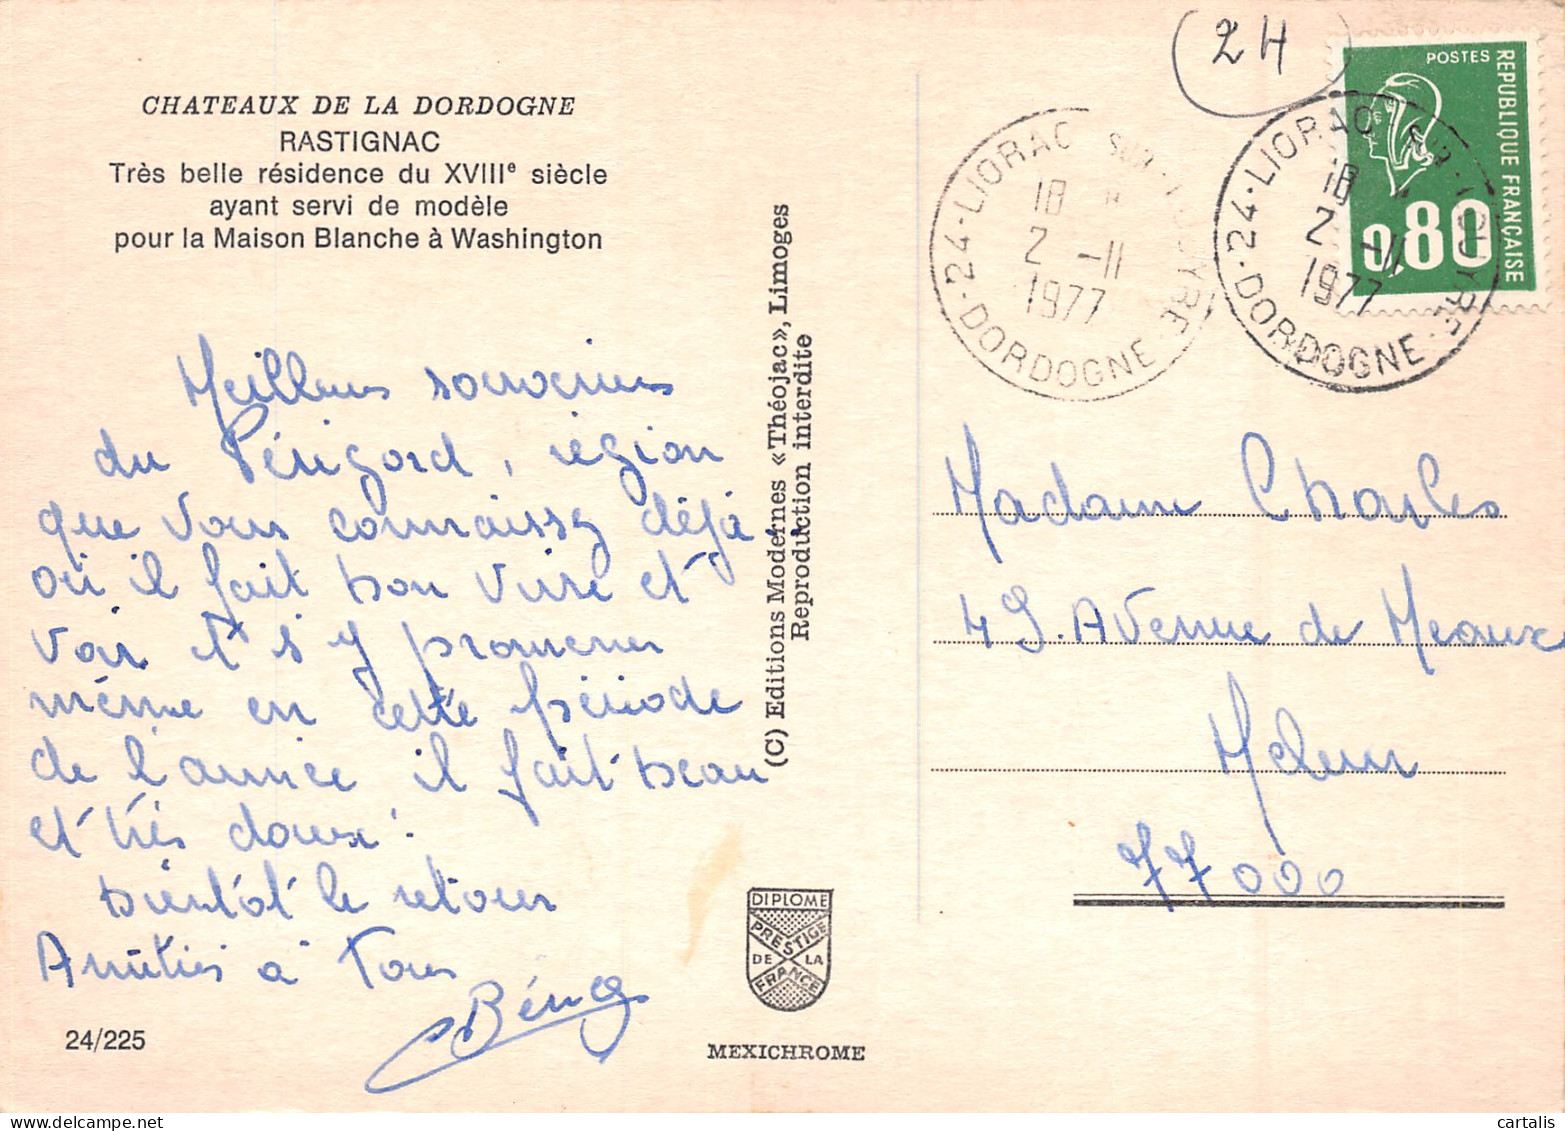 CHATEAUX DE LA DORDOGNE
RASTIGNAC
Très belle résidence du XVIIIe siècle
ayant servi de modèle
pour la Maison Blanche à Washington
Meilleurs souvenirs
du Périgord, région
que vous connaissez déjà
où il fait bon vivre et
voir et s'y promener
même en cette période
de l'année il fait beau
et très doux.
bientôt le retour
Amitiés à Tous
24/225
(C) Editions Modernes «Théojac», Limoges
Reproduction interdite
DIPLOME
PRESTIGE
DE LA
FRANCE
MEXICHROME
2H
POSTES
REPUBLIQUE FRANÇAISE
0,80
24-LIORAC SUR LOUYRE
18 H
2 -11
1977
DORDOGNE
24-LIORAC SUR LOUYRE
18
2 -11
1977
DORDOGNE
Madame Charles
49. Avenue de Meaux
Melun
77000
cartalis